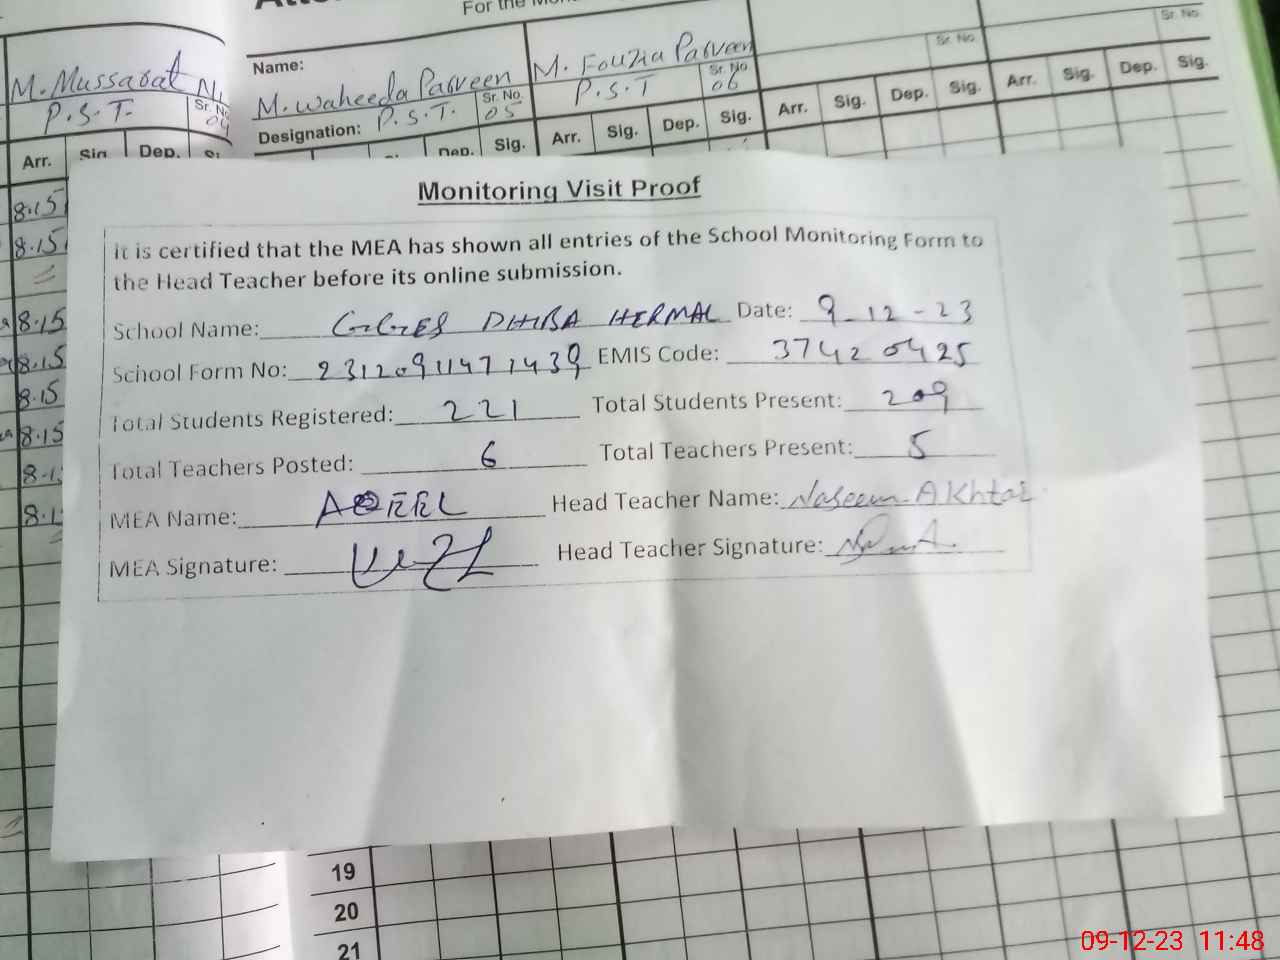 For the
M. Mussarat
P.S.T.
Sr. No.
04
Arr. Sig. Dep.
Name:
M. Waheeda Parveen
P.S.T.
Sr. No.
05
Designation:
M. Fouzia Parveen
P.S.T
Sr. No
06
Dep. Sig. Arr. Sig. Dep. Sig.
Sr. No.
Arr. Sig. Dep. Sig.
Sr. No.
Arr. Sig. Dep. Sig.
8.15
8.15
8.15
8.15
8.15
8.15
Monitoring Visit Proof
It is certified that the MEA has shown all entries of the School Monitoring Form to
the Head Teacher before its online submission.
School Name: GGES DHIBA HERMAL Date: 9-12-23
School Form No: 23120911471439 EMIS Code: 37420425
Total Students Registered: 221 Total Students Present: 209
Total Teachers Posted: 6 Total Teachers Present: 5
MEA Name: Head Teacher Name: Naseem Akhtar
MEA Signature: Head Teacher Signature:
19
20
21
09-12-23 11:48